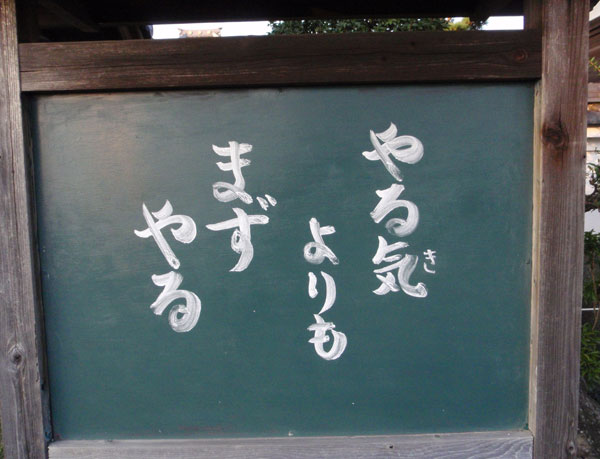 やる気
き
よりも
まず
やる